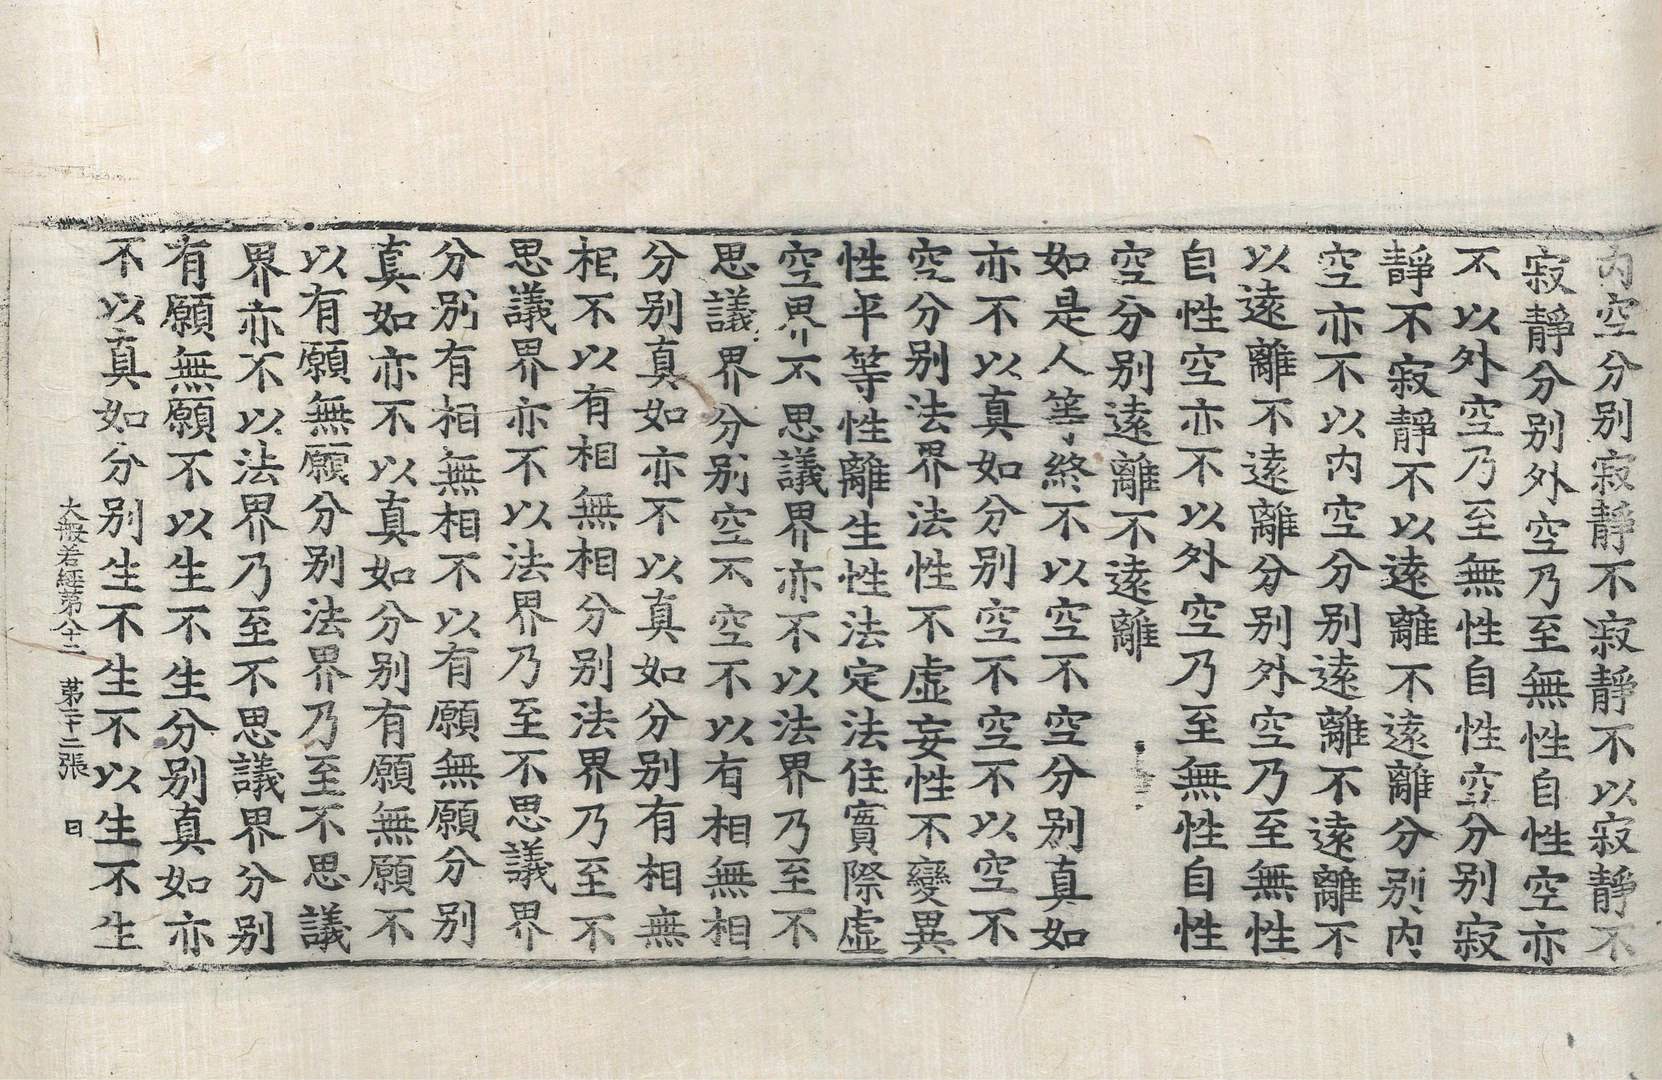 內空分別寂靜不寂靜不以寂靜不
寂靜分別外空乃至無性自性空亦
不以外空乃至無性自性空分別寂
靜不寂靜不以遠離不遠離分別內
空亦不以內空分別遠離不遠離不
以遠離不遠離分別外空乃至無性
自性空亦不以外空乃至無性自性
空分別遠離不遠離
如是人等終不以空不空分別真如
亦不以真如分別空不空不以空不
空分別法界法性不虛妄性不變異
性平等性離生性法定法住實際虛
空界不思議界亦不以法界乃至不
思議界分別空不空不以有相無相
分別真如亦不以真如分別有相無
相不以有相無相分別法界乃至不
思議界亦不以法界乃至不思議界
分別有相無相不以有願無願分別
真如亦不以真如分別有願無願不
以有願無願分別法界乃至不思議
界亦不以法界乃至不思議界分別
有願無願不以生不生分別真如亦
不以真如分別生不生不以生不生
大般若經第八十二 第二十二張 日